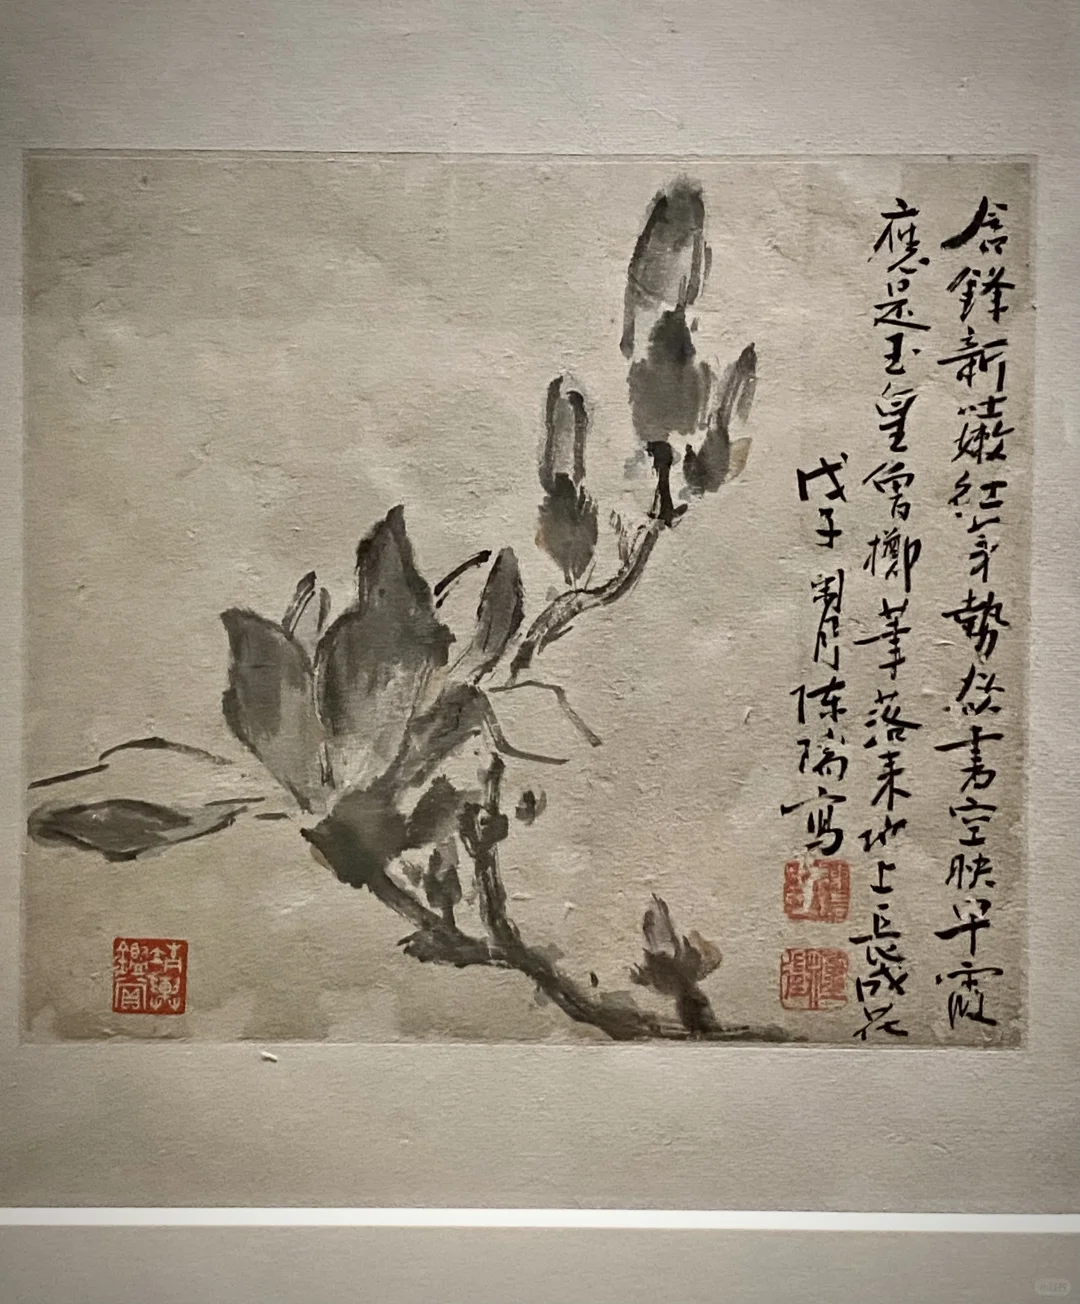 含鋒新吐嫩紅芽勢欲書空映早霞
應是玉皇曾擲筆落來地上長成花
戊子月陳瑞寫